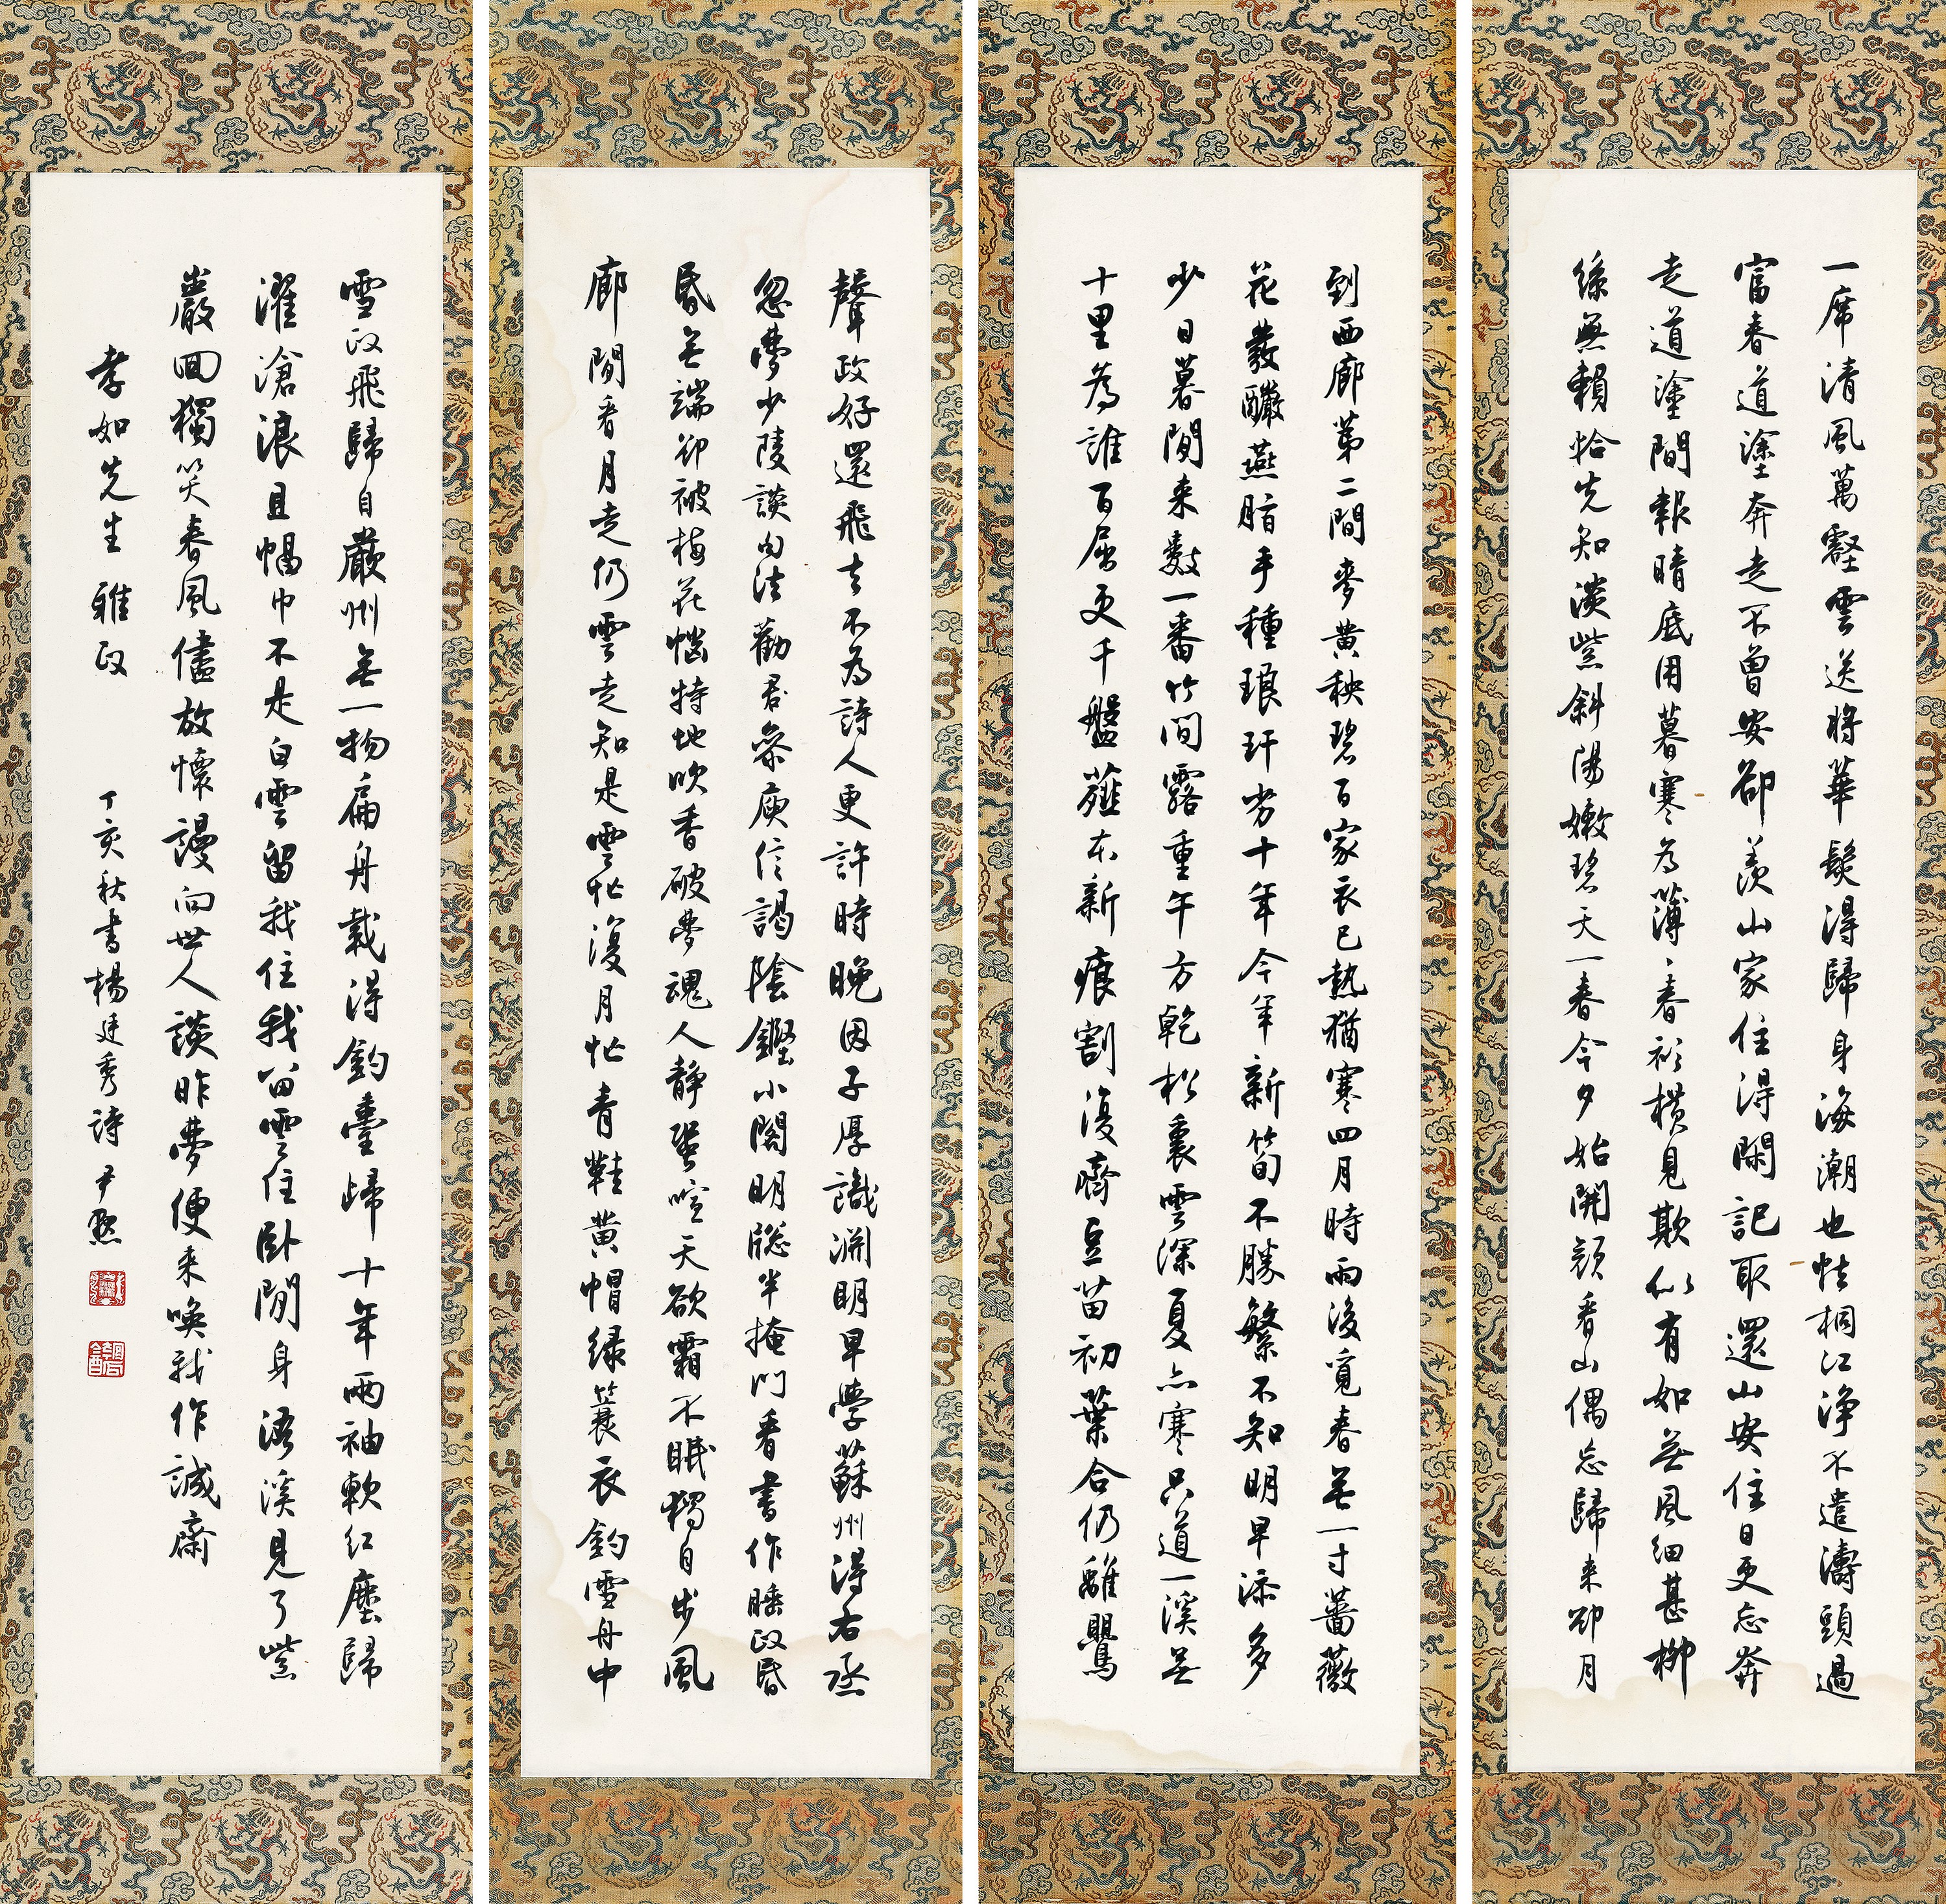 一席清風萬壑雲送將華髮得歸身海潮也怯桐江淨不遣濤頭過
富春道塗奔走不曾安卻羨山家住得閑記取還山安住日更忘奔
走道塗間報晴底用暮寒為薄〻春衫橫見欺似有如無風細甚柳
絲無賴恰先知淡紫斜陽嫩碧天一春今夕始開顏看山偶忘歸來卻月
到西廊第二間麥黃秧碧百家衣已熱猶寒四月時雨後覓春無一寸薔薇
花發釅燕脂手種琅玕劣十年今年新筍不勝繁不知明早添多
少日暮閒來數一番竹間露重午方乾松裏雲深夏亦寒只道一溪無
十里為誰百屈更千盤薤本新痕割復齊豆苗初葉合仍離鸎
聲政好還飛去不為詩人更許時晚因子厚識淵明早學蘇州得右丞
忽夢少陵談句法勸君參庾信謁陰鏗小閣明窗半掩門看書作睡政昏
昏無端卻被梅花惱特地吹香破夢魂人靜蛩喧天欲霜不眠獨自步風
廊閒看月走仍雲走知是雲忙復月忙青鞋黃帽綠蓑衣釣雪舟中
雪政飛歸自嚴州無一物扁舟載得釣臺歸十年兩袖軟紅塵歸
濯滄浪且幅巾不是白雲留我住我留雲住臥閒身浯溪見了紫
巖回獨笑春風儘放懷謾向世人談昨夢便來喚我作誠齋
孝如先生 雅政
丁亥秋書楊廷秀詩 尹默